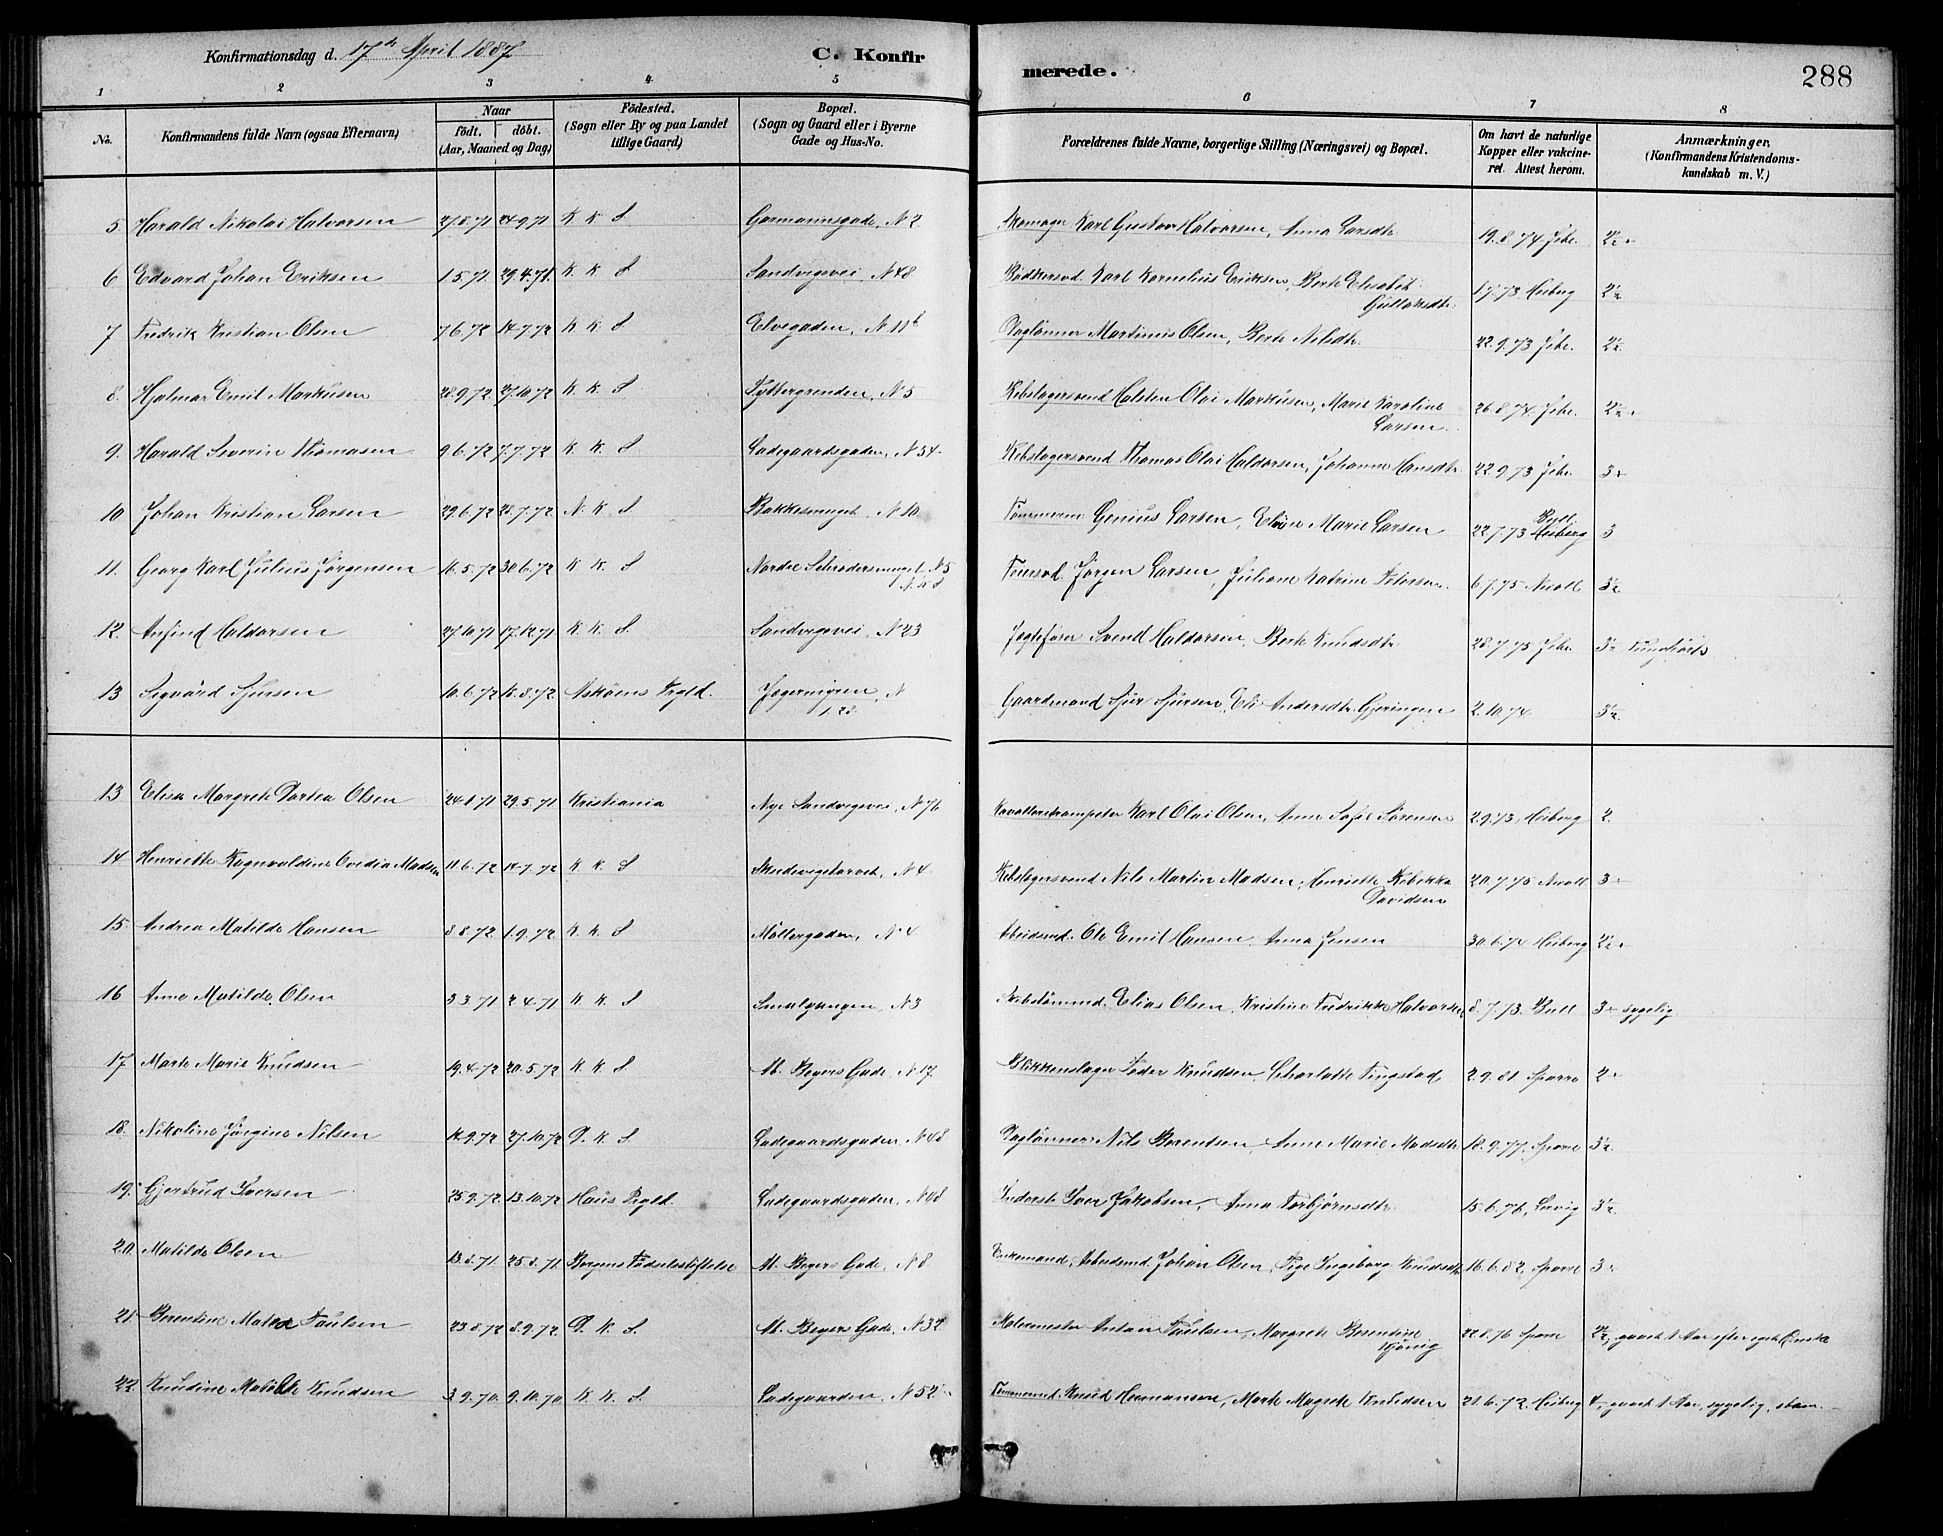 Konfirmationsdag d. 17de April 1887
C. Konfir
merede.
288
1 2 3 4 5 6 7 8
No.
Konfirmandens fulde Navn (ogsaa Efternavn)
Naar
födt. döbt.
(Aar, Maaned og Dag)
Födested.
(Sogn eller By og paa Landet
tillige Gaard)
Bopæl.
(Sogn og Gaard eller i Byerne
Gade og Hus-No.
Forældrenes fulde Navne, borgerlige Stilling (Næringsvei) og Bopæl.
Om havt de naturlige
Kopper eller vakcine-
ret. Attest herom.
Anmærkninger.
(Konfirmandens Kristendoms-
kundskab m. V.)
5 Harald Nikolai Halvorsen 27.8.71 24.9.71 K. K. S Garmannsgade, N 2 Skomager Karl Gustav Halvorsen, Anna Larsdtr. 19.8.74 Jebe. 2½+
6 Edvard Johan Eriksen 1.5.71. 29.4.71. K. K. S Sandvigsvei, N 48. Bødkersvd. Karl Kornelius Eriksen, Berte Elisabet 1.7.73 Heiberg 2½
Gullaksdtr.
7 Fredrik Kristian Olsen 7.6.72 14.7.72 K. K. S Elvegaden, N. 11b Daglønner Martinus Olsen, Berte Nilsdtr. 22.9.73 Jebe. 2½
8. Hjalmar Emil Markusen 28.9.72 27.10.72 K. K. S Pyttergrenden, N 5 Rebslagersvend Halsten Olai Markusen, Marie Karoline 26.8.74. Jebe. 2½+
Larsen.
9. Harald Severin Thomasen 9.6.72 7.7.72 K. K. S Ladegaardsgaden, N 54. Rebslagersvend Thomas Olai Haldorsen, Johanne Hansdtr. 22.9.73 Jebe. 3+
10 Johan Kristian Larsen 29.6.72 28.7.72 N. K. S Bakkesmuget, N 10 Tømmerm. Genius Larsen, Marie Larsen 22.7.73 Bull
Heiberg 3
11. Georg Karl Julius Jørgensen 16.5.72 30.6.72 K. K. S Nordre Schrødersmuget N 5 Jørgen Larsen, Juliane Katrine Petersen. 6.7.75 Nicoll 3½
12. Anfind Haldorsen 27.10.71 17.12.71 K. K. S. Sandvigsvei, N 23 Jagtefører Svend Haldorsen, Berte Knudsdtr. 28.7.75 Jebe. 3½ Tunghørt
13 Sigvard Sjursen 10.6.72 18.8.72. Askøens Prgld. N Gaardmand Sjur Sjursen, Eli Andersdtr. 2.10.74 3½.
1.28.
13 Elisa Margrete Dortea Olsen 24.1.71 29.5.71 Kristiania Nye Sandvigsvei, N 76 Kavalleritrompeter Karl Olai Olsen, Anne Sofie Sørensen 2.9.73 Heiberg 2.
14 Henriette Ragnvaldine Ovedia Madsen 11.6.72 14.7.72 K. K. S Skudevigstorvet, N 4. Rebslagersvend Nils Martin Madsen, Henriette Rebekka 20.7.75 Nicoll 3+
Davidsen
15. Andrea Matilde Hansen 8.8.72 1.9.72 K. K. S Møllergaden, N 4 Arbeidsmd. Ole Emil Hansen, Anna Jensen 30.6.74 Heiberg 2½+
16 Anna Matilde Olsen 3.3.71 2.4.71 K. K. S Smalgangen, N 3 Skibstømmmd. Elias Olsen, Kristine Fredrikke Halvorsen 8.7.73. Bull 3+ sygelig
17 Marte Marie Knudsen 19.4.72 20.5.72 K. K. S Abr. Beyers Gade, N 17. Blikkenslager Peder Knudsen, Charlotte Tingstad 2.9.81 Sparre 2+
18. Nikoline Jørgine Nilsen 14.9.72 27.10.72 D. K. S Ladegaardsgaden, N 48 Daglønner Nils Berentsen, Anne Marie Madsdtr. 18.9.77. Sparre 3½.
19. Gjertrud Iversen 25.9.72 13.10.72 Haus Prgld. Ladegaardsgaden, N 48 Inderste Iver Jakobsen, Anna Torbjørnsdtr. 15.6.76, 3½.
20. Matilde Olsen 13.8.71 25.8.71 Bergens Fødselsstiftelse Abr. Beyers Gade, N 8 Enkemand, Arbeidsmd. Johan Olsen, Pige Ingeborg Knudsdtr. 16.6.82, Sparre 3+
21. Berentine Matea Paulsen 23.8.72 8.9.72 D. K. S. Abr. Beyers Gade, N 32 Malermester Anton Paulsen, Margrete Berentine 22.8.76 Sparre 2½, gaaet 1 Aar efter eget Ønske
22 Knudine Matilde Knudsen 3.9.70. 9.10.70 K. K. S. Ladegaarden, N 52 Tømmermd. Knud Hermansen, Marte Magrete Knudsen 21.6.72, Heiberg 4, gaaet 1 Aar, sygelig,